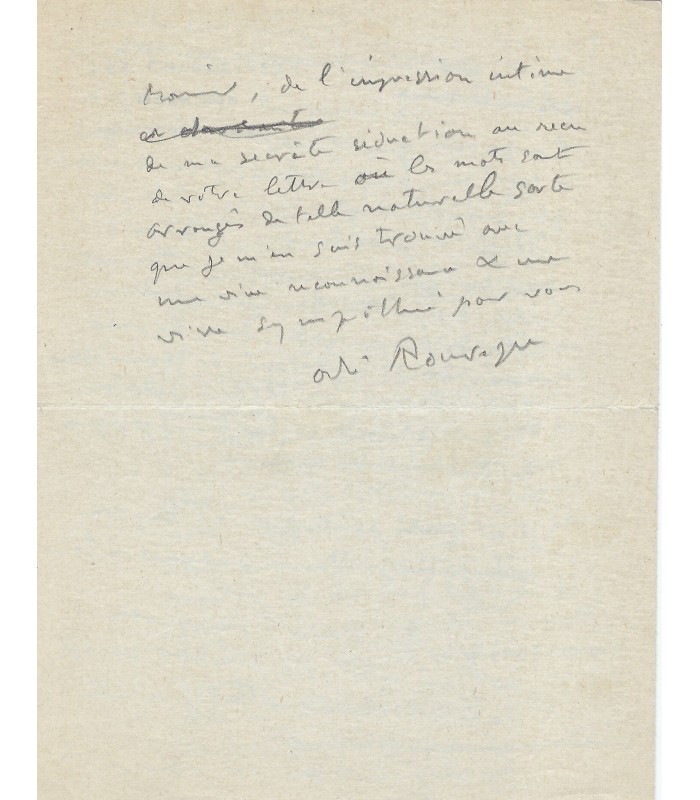 , de l'impression intime
de ma secrète séduction au reçu
de votre lettre où les mots sont
arrangés de telle naturelle sorte
que je m'en suis trouvé avec
une vive reconnaissance & une
vive sympathie pour vous
André Rouveyre